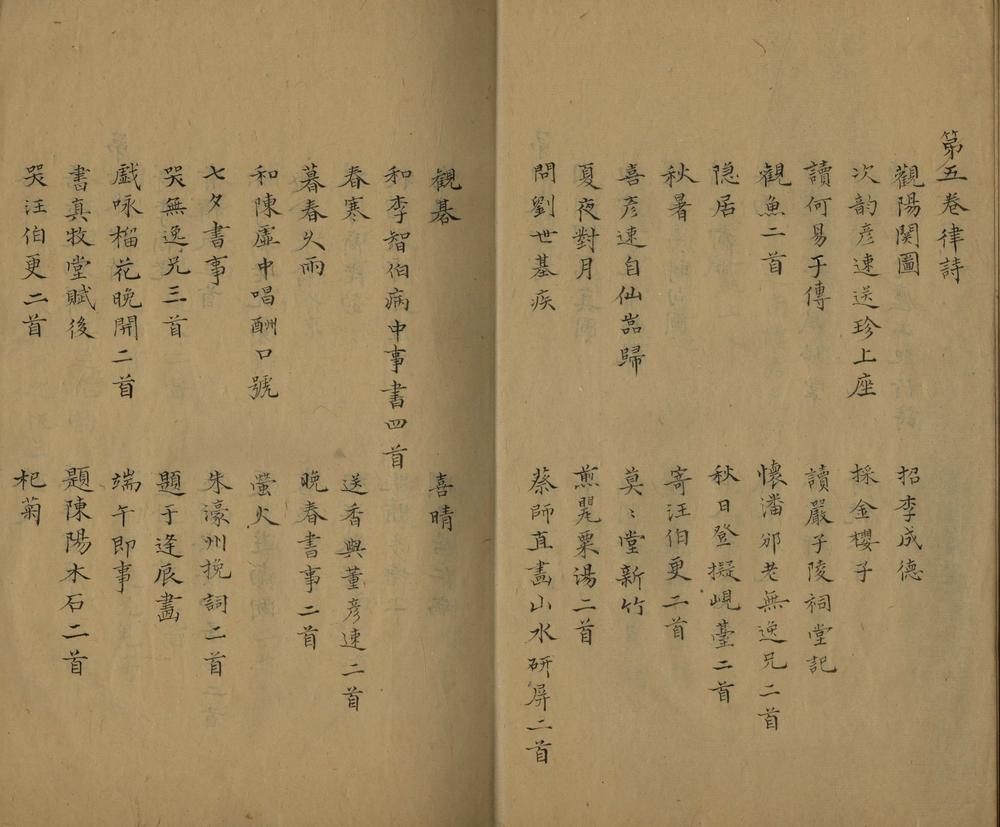 第五卷律詩
觀陽関圖　招李成德
次韵彦速送珍上座　採金櫻子
讀何易于傳　讀嚴子陵祠堂記
觀魚二首　懷潘邠老無逸兄二首
隐居　秋日登擬峴臺二首
秋暑　寄汪伯更二首
喜彦速自仙嵓歸　莫〻堂新竹
夏夜對月　煎甖粟湯二首
問劉世基疾　蔡師直畫山水硏屏二首
觀碁　喜晴
和李智伯病中事書四首
春寒　送香與董彦速二首
暮春久雨　晚春書事二首
和陳虛中唱酬口號　螢火
七夕書事　朱濠州挽詞二首
哭無逸兄三首　題于逢辰畵
戲咏榴花晚開二首　端午即事
書真牧堂賦後　題陳陽木石二首
哭汪伯更二首　杞菊